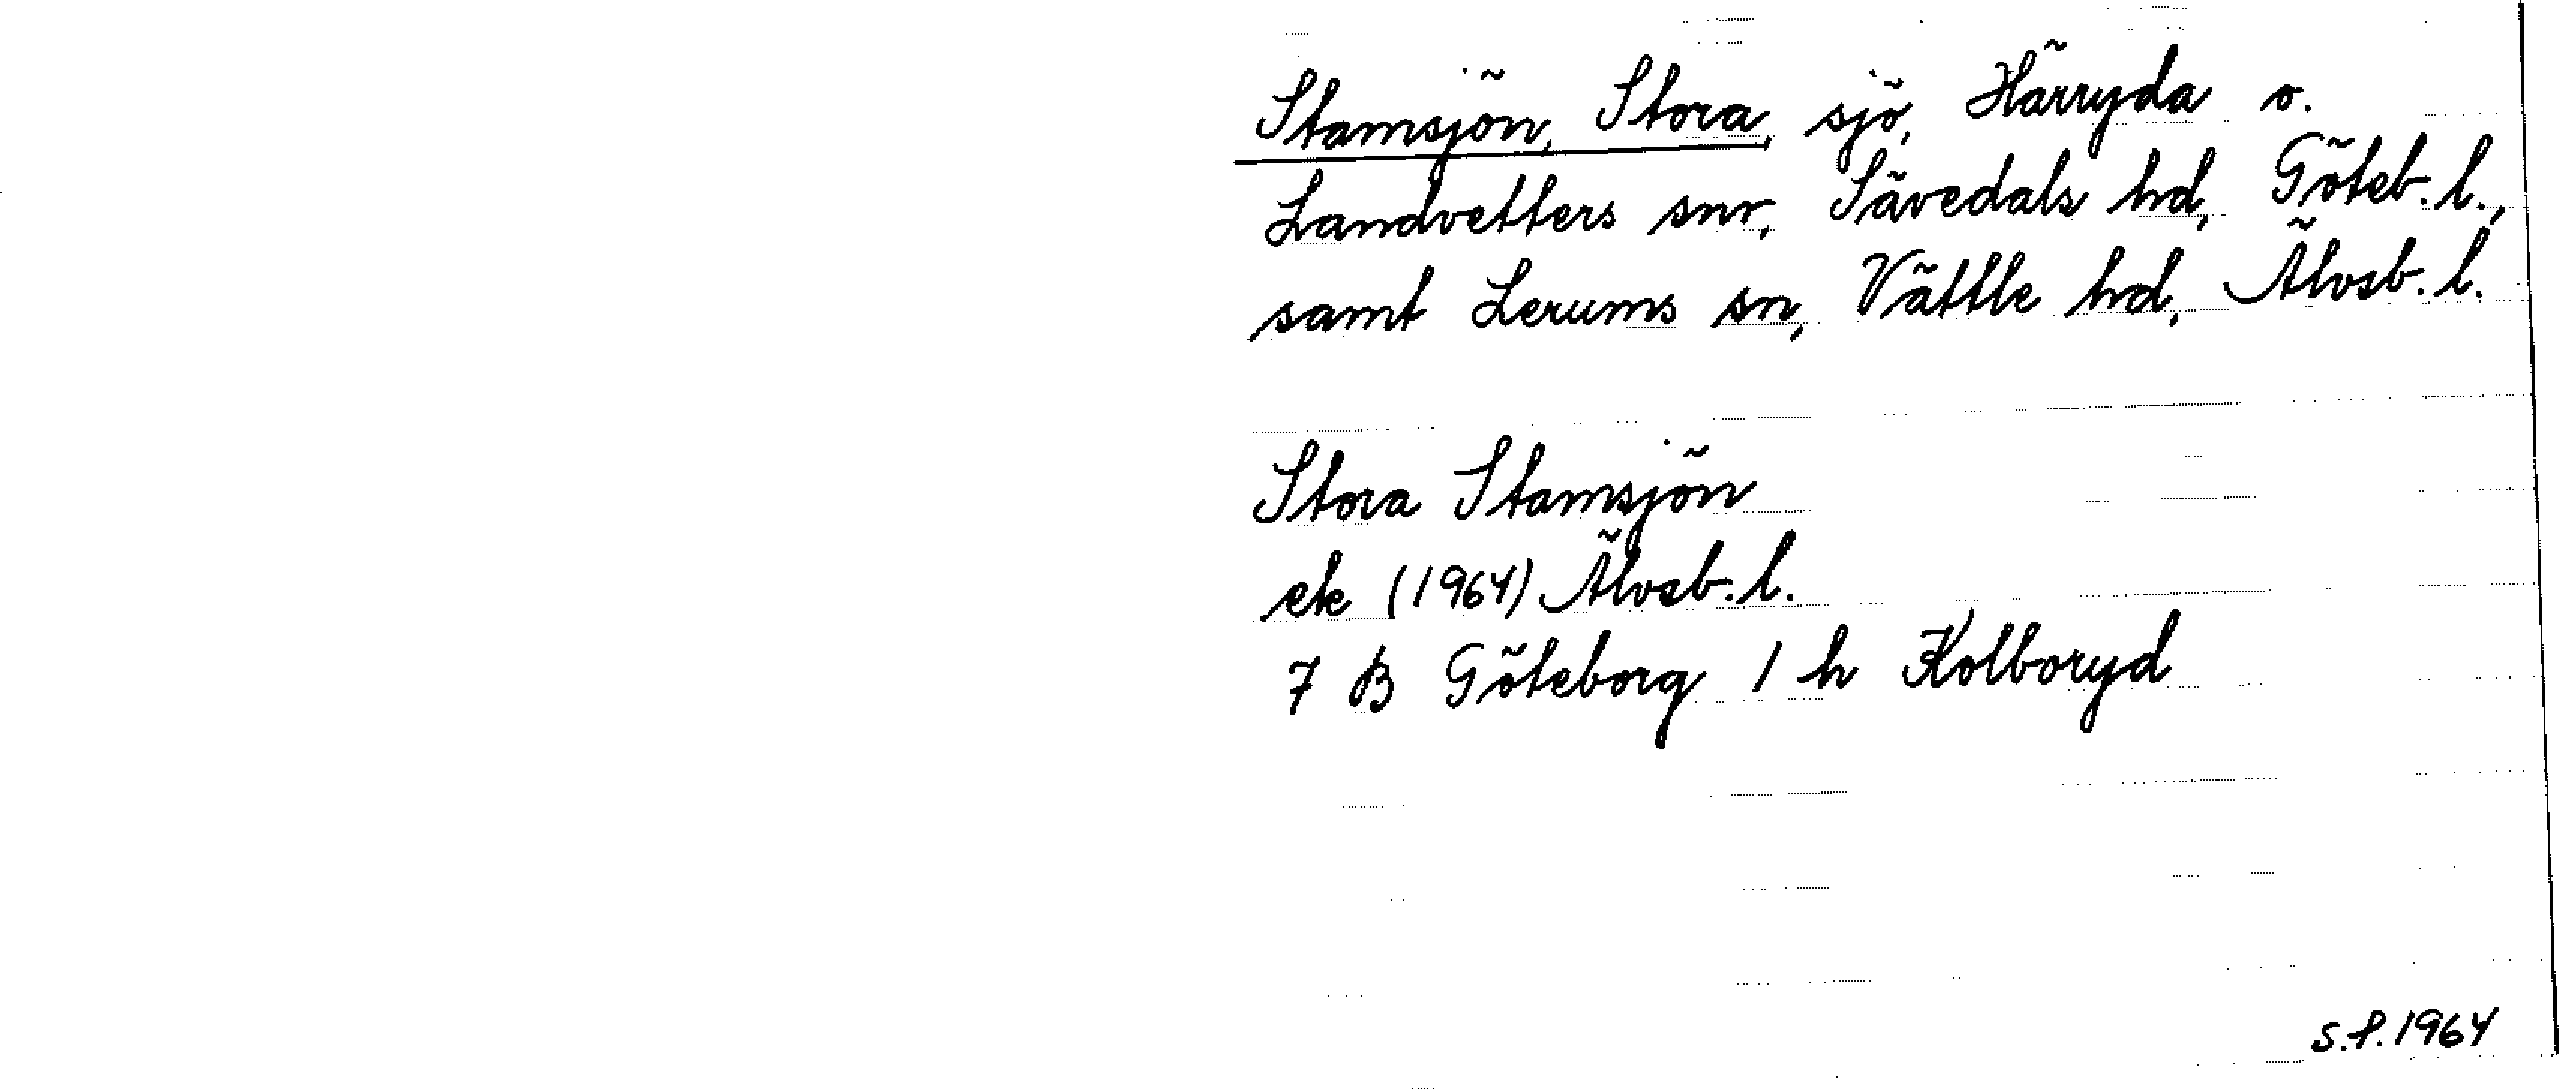 Stamsjön, Stora, sjö, Härryda o.
Landvetters snr, Sävedals hd, Göteb. l.,
samt Lerums sn, Vättle hd, Älvsb. l.
Stora Stamsjön
ek (1964) Älvsb. l.
7 B Göteborg 1 h Kolboryd
S.P. 1964